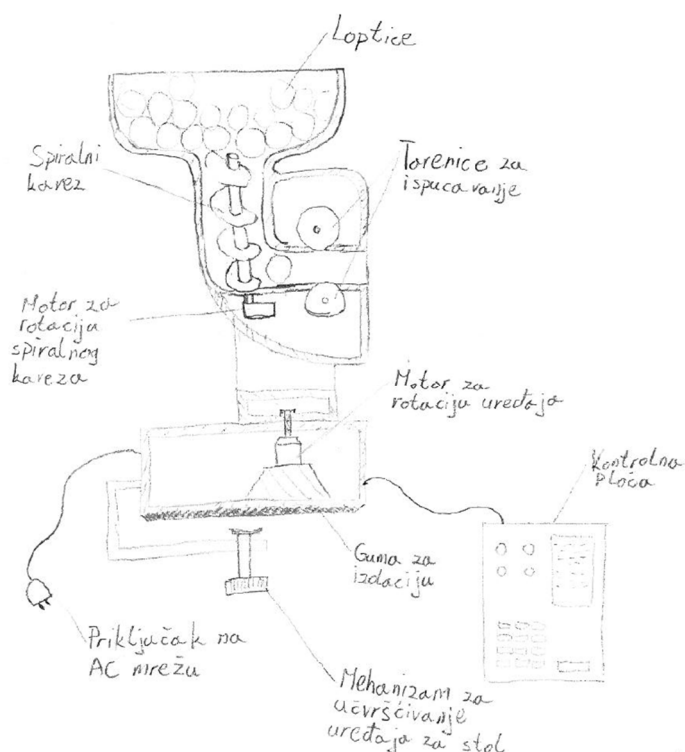 Loptice
Spiralni
karez
Tarenice za
ispucavanje
Motor za
rotaciju
spiralnog
kareza
Motor za
rotaciju uređaja
Kontrolna
Ploča
Guma za
izolaciju
Priključak na
AC mrežu
Mehanizam za
učvršćivanje
uređaja za stol